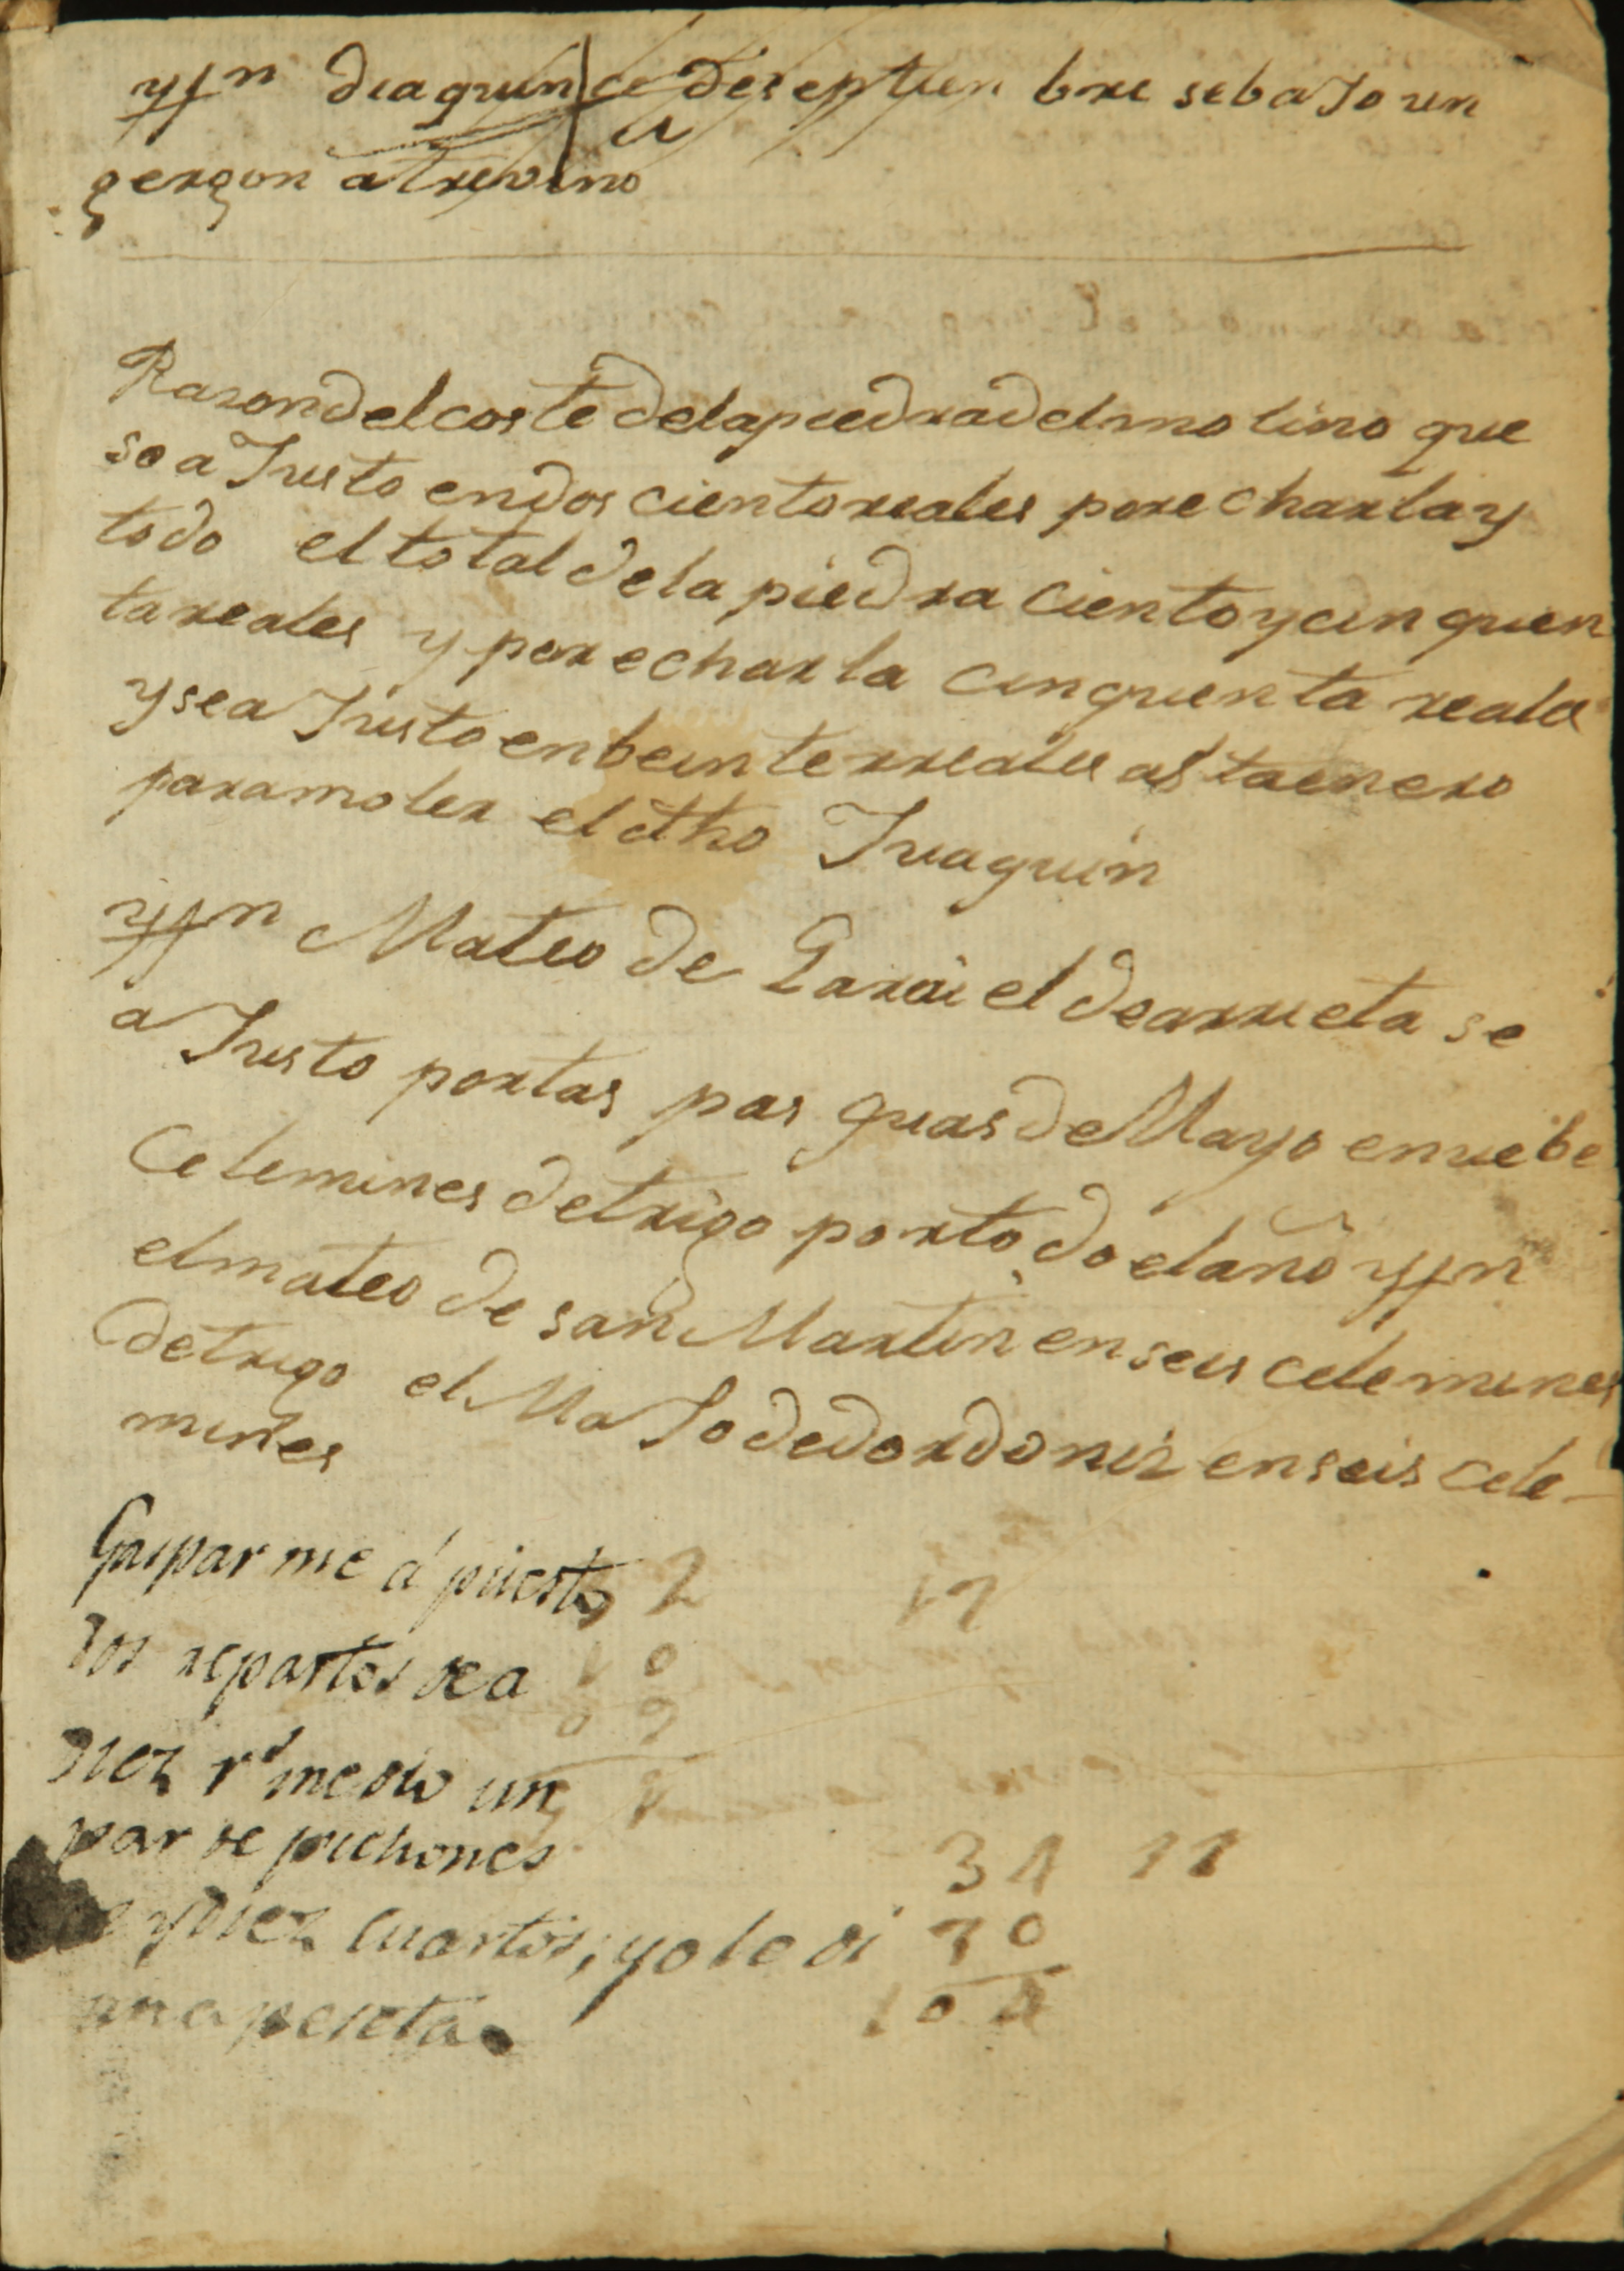 yttn dia quince de septien bre se baJo un
gergon a trevino
Rason del coste de la piedra del mo lino que
se a Justo en dos ciento reales por echarla y
todo el total de la piedra ciento y cin quen
ta reales y por echar la cinquenta reales
y se a Justo en beinte rreales asta enero
para moler el dho Juaquin
yttn Mateo de Garai el de arrieta se
a Justo por las pas quas de Mayo en nuebe
Celemines de trigo por to do el año yttn
el mateo de san Martin en seis celemines
de trigo el MaJo de dordoniz en seis cele-
mines
Gaspar me á puesto 2 17
dos repartos de a 1 0
diez rs medio un
par de pichones 34 11
y diez cuartos, yo le di 70
una peseta 104